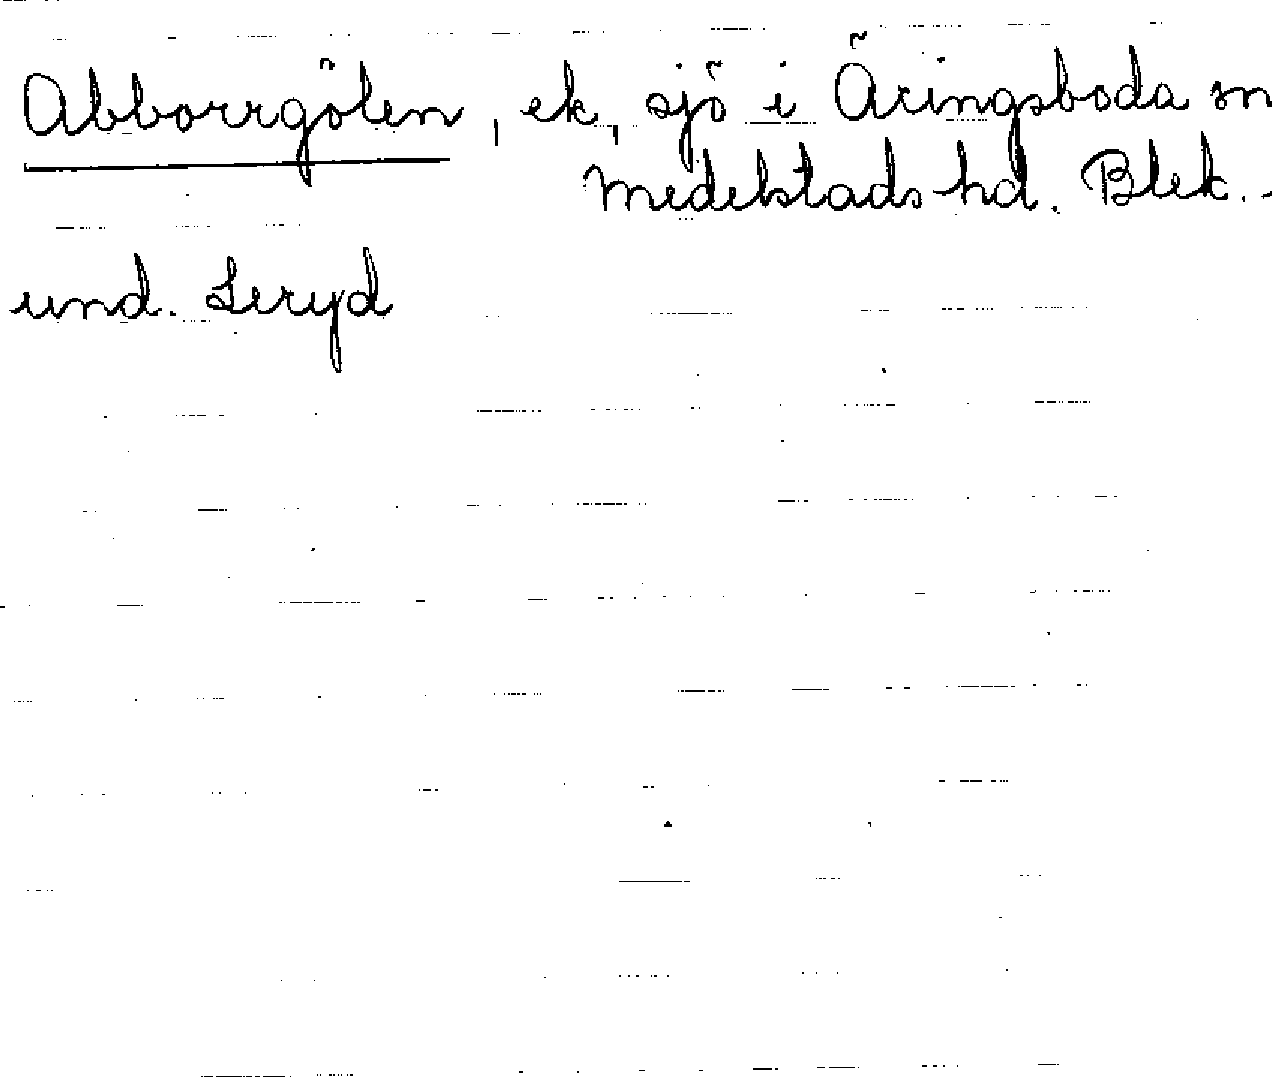 Abborrgölen, ek, sjö i Äringsboda sn
Medelstads hd. Blek.
und. Leryd